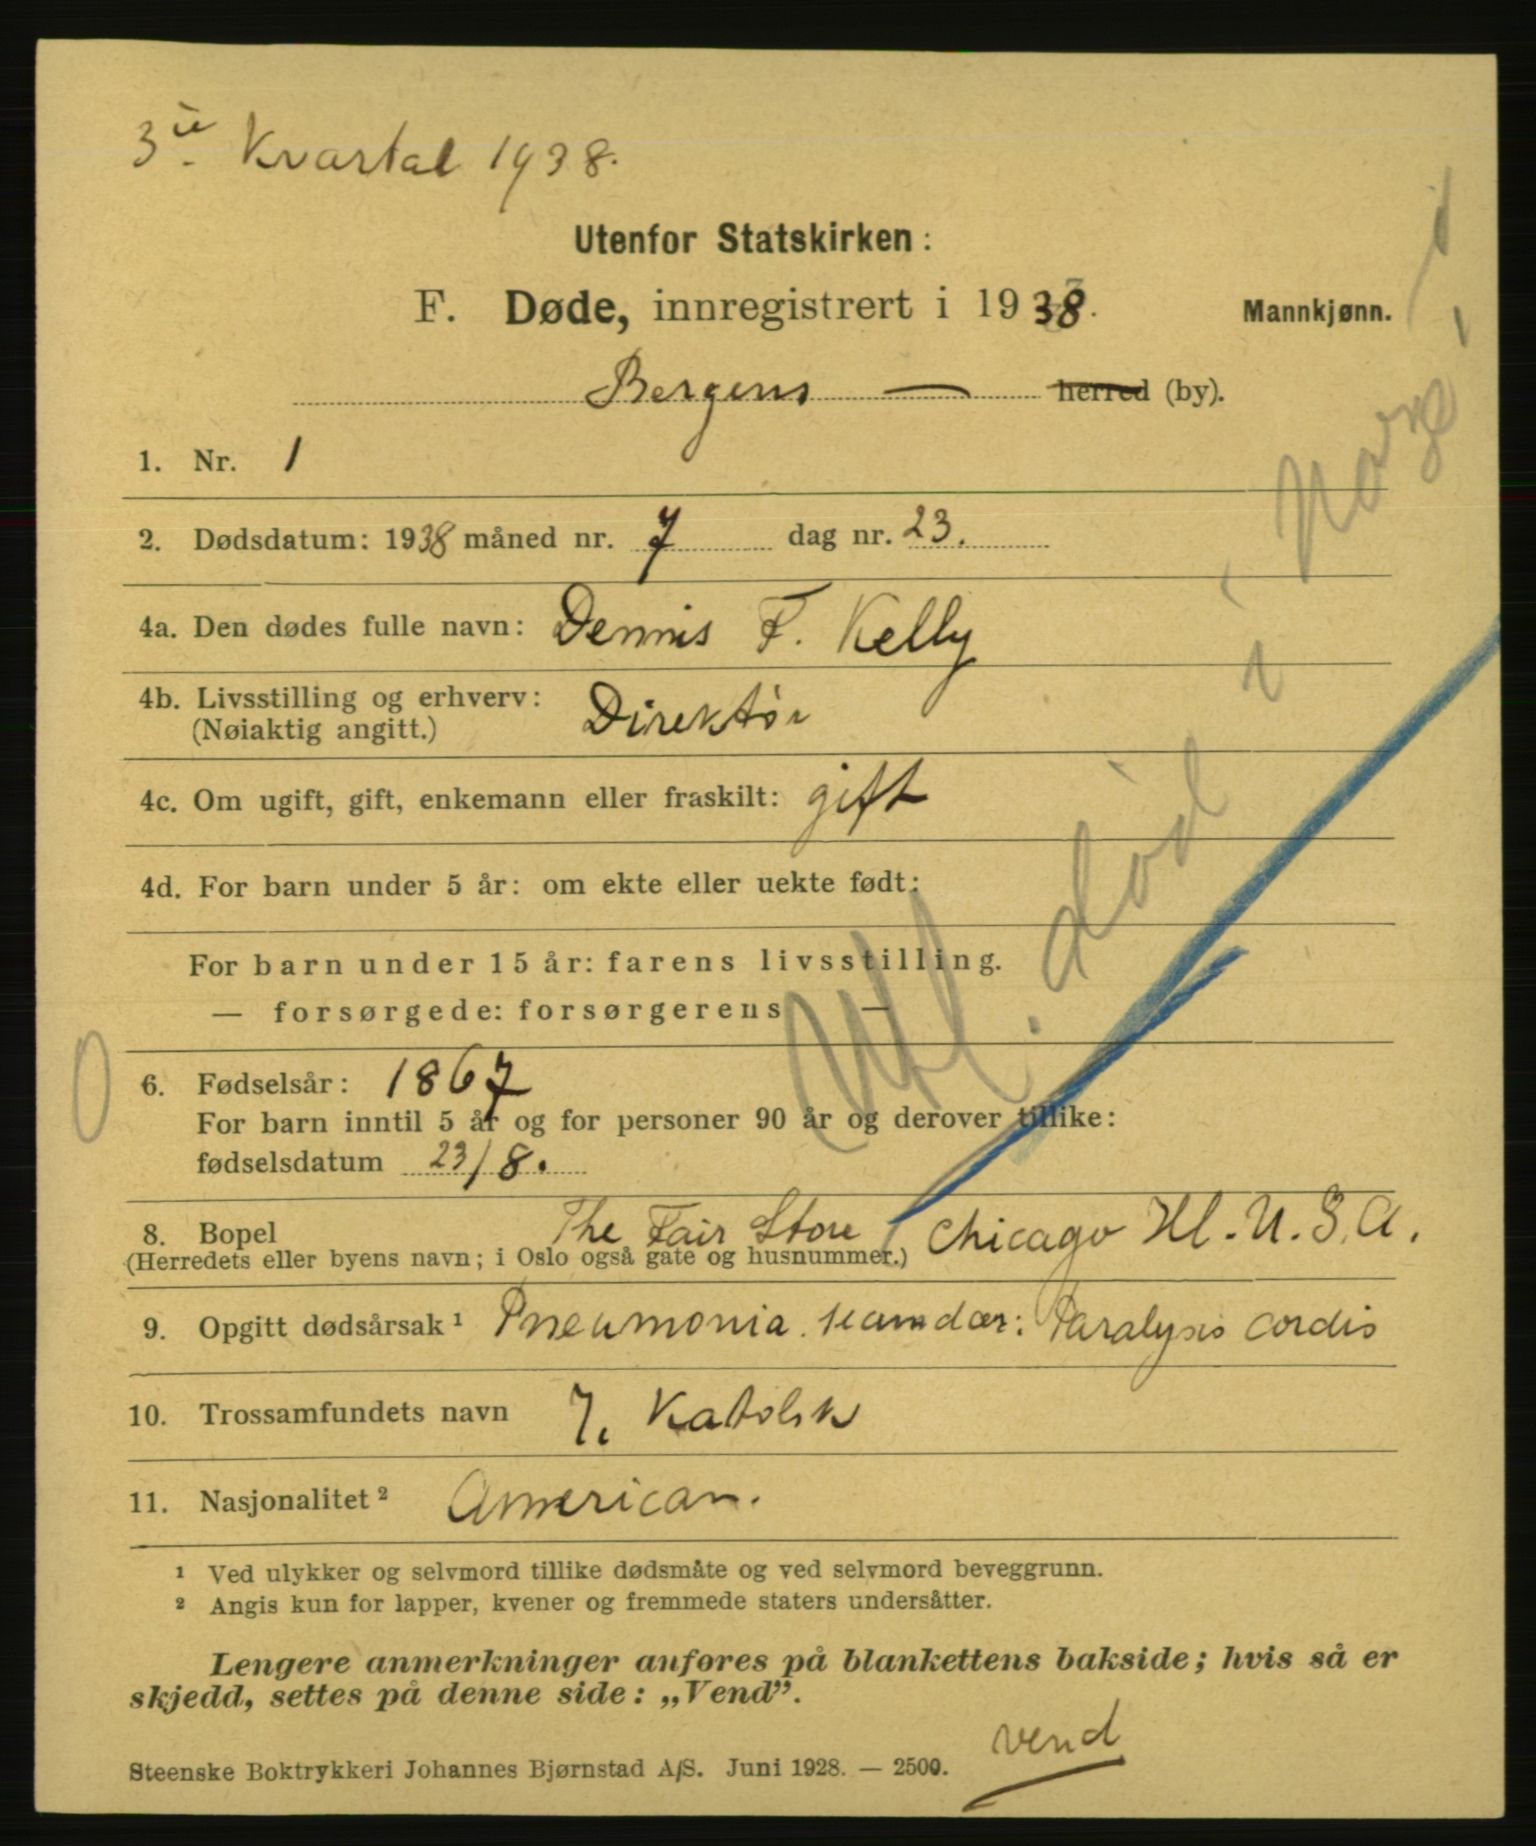 3die Kvartal 1938.
Utenfor Statskirken:
F. Døde, innregistrert i 1938.
Mannkjønn.
Bergens — herred (by).
1. Nr. 1
2. Dødsdatum: 1938 måned nr. 7 dag nr. 23.
4a. Den dødes fulle navn: Dennis F. Kelly
4b. Livsstilling og erhverv: Direktør
(Nøiaktig angitt.)
4c. Om ugift, gift, enkemann eller fraskilt: gift
4d. For barn under 5 år: om ekte eller uekte født:
For barn under 15 år: farens livsstilling.
— forsørgede: forsørgerens —
0
6. Fødselsår: 1867
For barn inntil 5 år og for personer 90 år og derover tillike:
fødselsdatum 23/8.
8. Bopel The Fair Store, Chicago Ill. U.S.A.
(Herredets eller byens navn; i Oslo også gate og husnummer.)
9. Opgitt dødsårsak ¹ Pneumonia. secundær: Paralysis cordis
10. Trossamfundets navn 7. Katolsk
11. Nasjonalitet ² American.
Utl. død i Norge
¹ Ved ulykker og selvmord tillike dødsmåte og ved selvmord beveggrunn.
² Angis kun for lapper, kvener og fremmede staters undersåtter.
Lengere anmerkninger anføres på blankettens bakside; hvis så er
skjedd, settes på denne side: „Vend”.
vend
Steenske Boktrykkeri Johannes Bjørnstad A/S. Juni 1928. — 2500.